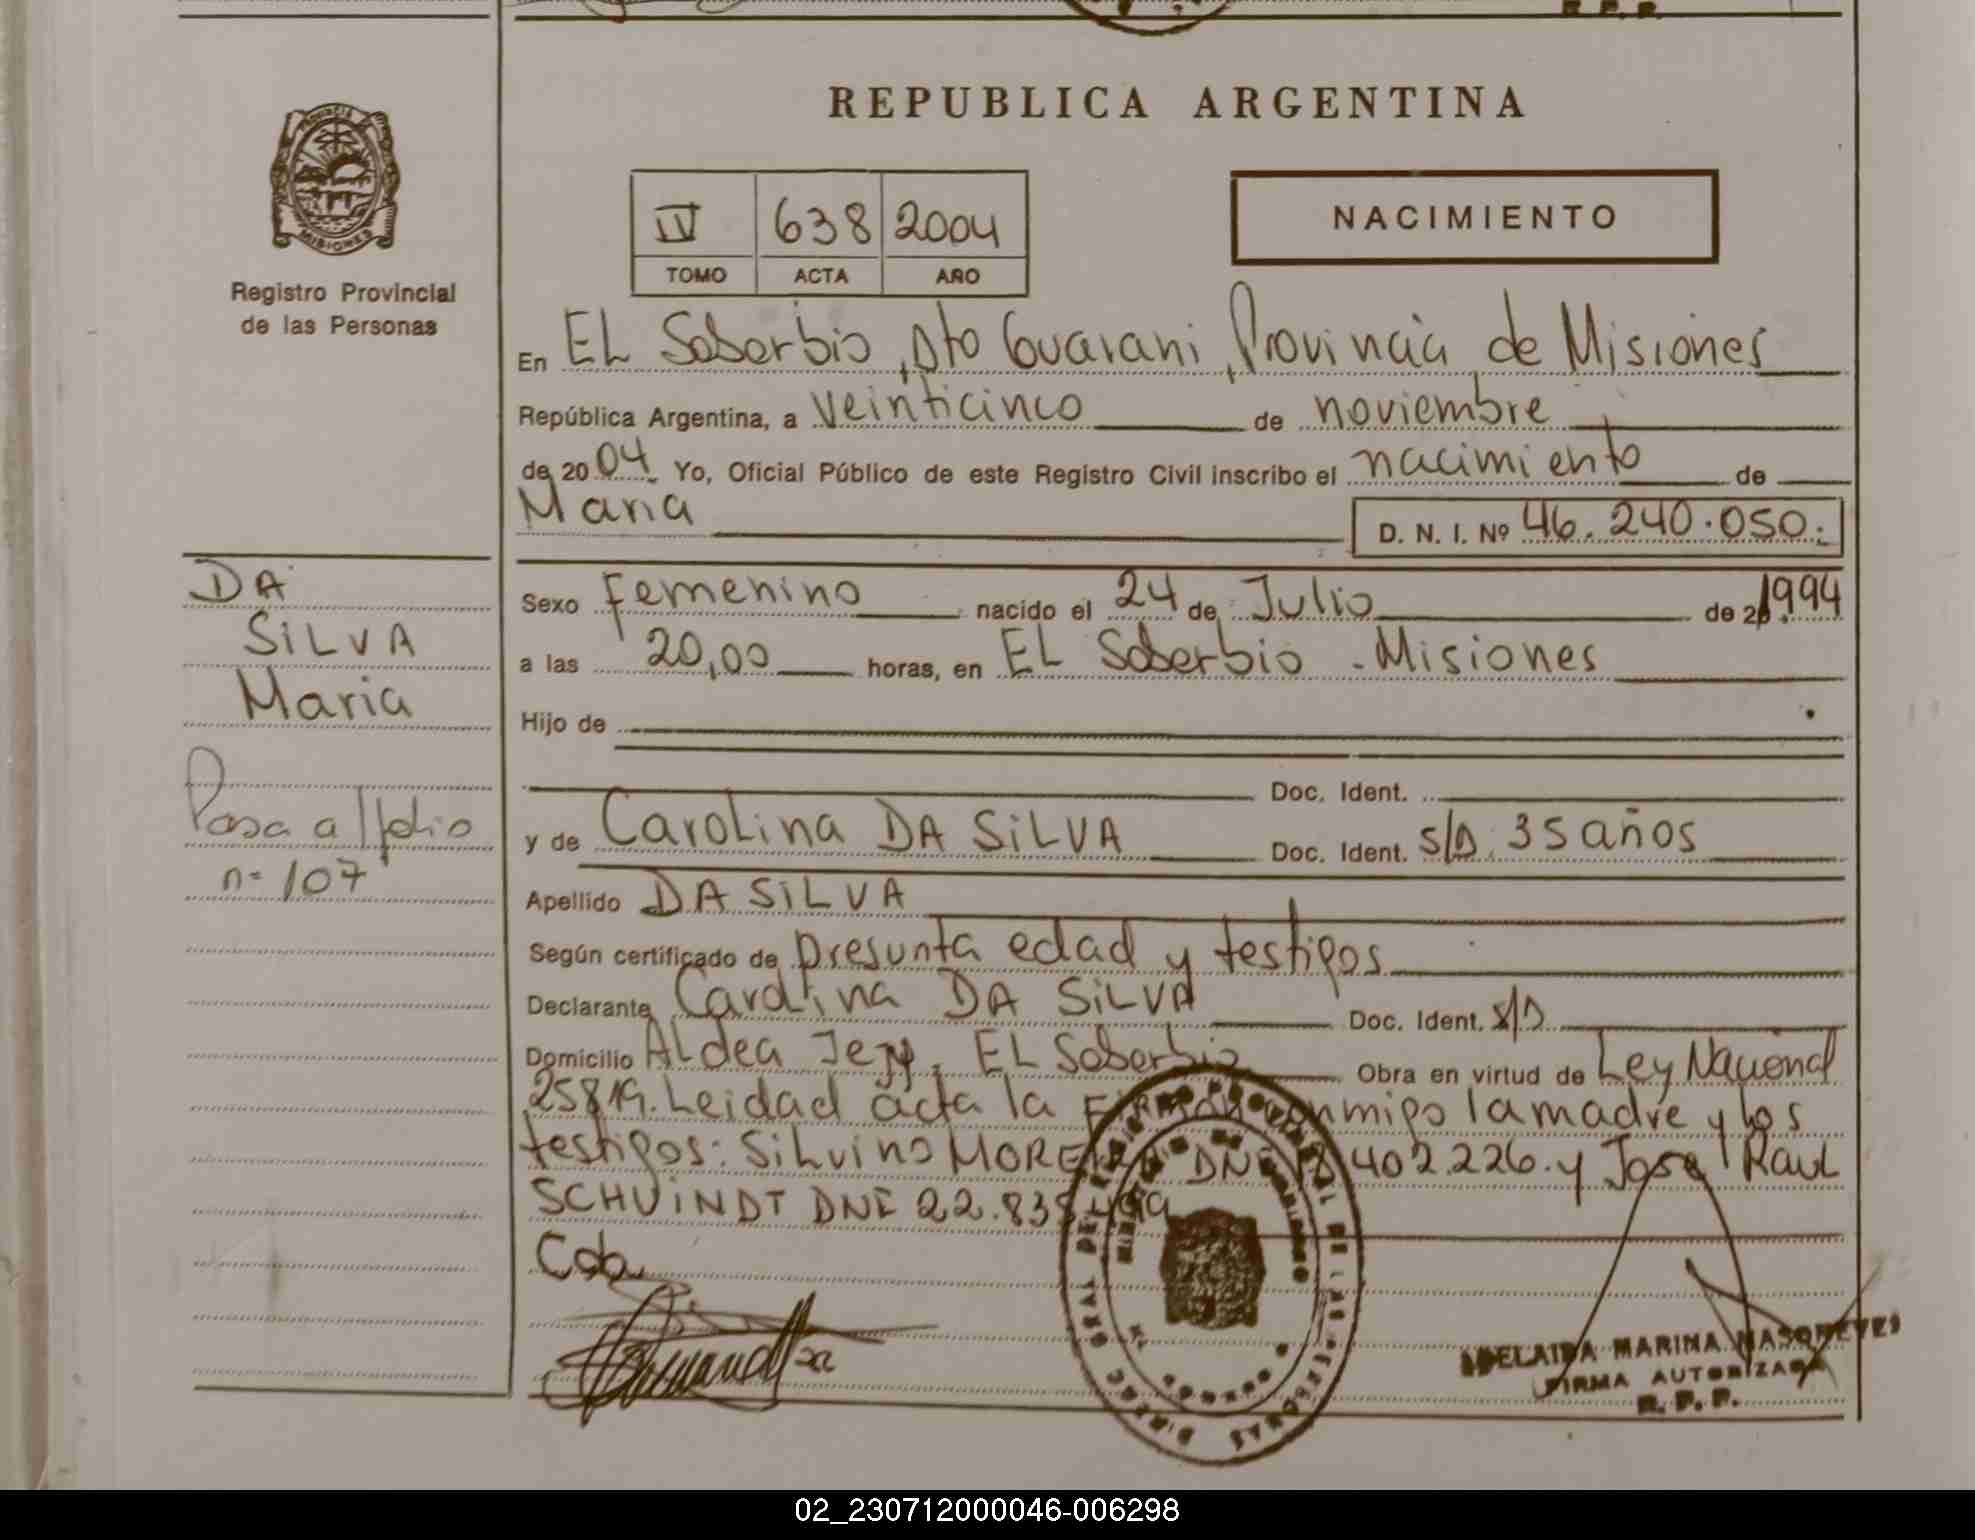 REPUBLICA ARGENTINA
PROVINCIA DE MISIONES
Registro Provincial
de las Personas
IV 638 2004
TOMO ACTA AÑO
NACIMIENTO
En EL Soberbio, Dto Guarani, Provincia de Misiones
República Argentina, a veinticinco de noviembre
de 2004 Yo, Oficial Público de este Registro Civil inscribo el nacimiento de
Maria D. N. I. Nº 46.240.050.
DA
SILVA
Maria
Pasa al folio
nº 107
Sexo Femenino nacido el 24 de Julio de 1994
a las 20,00 horas, en EL Soberbio - Misiones
Hijo de
Doc. Ident.
y de Carolina DA SILVA Doc. Ident. S/D. 35 años
Apellido DA SILVA
Según certificado de presunta edad y testigos
Declarante Carolina DA SILVA Doc. Ident. S/D
Domicilio Aldea Jejy, EL Soberbio Obra en virtud de Ley Nacional
25819. Leidad acta la Firman conmigo la madre y los
testigos: Silvino MOREIRA DNE 18.402.226. y Jose Raul
SCHUINDT DNE 22.838.499
ADELAIDA MARINA MASGREVES
FIRMA AUTORIZADA
R. P. P.
02_230712000046-006298